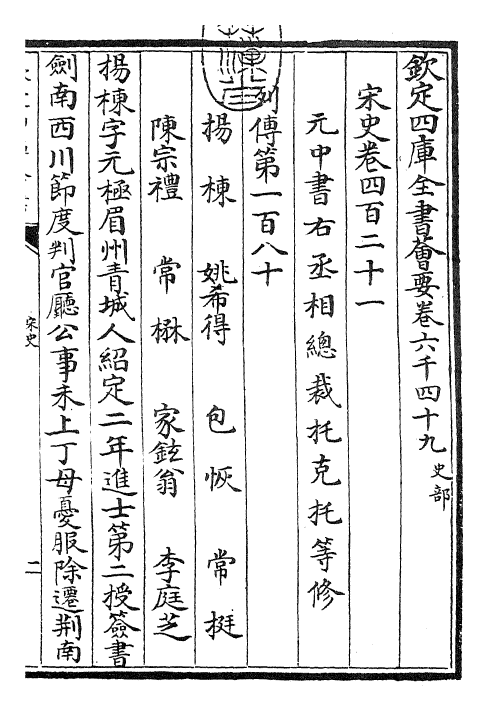 欽定四庫全書薈要卷六千四十九 史部
宋史卷四百二十一
元中書右丞相總裁托克托等修
列傳第一百八十
楊棟 姚希得 包恢 常挺
陳宗禮 常楙 家鉉翁 李庭芝
楊棟字元極眉州青城人紹定二年進士第二授簽書
劍南西川節度判官廳公事未上丁母憂服除遷荆南
宋史
二